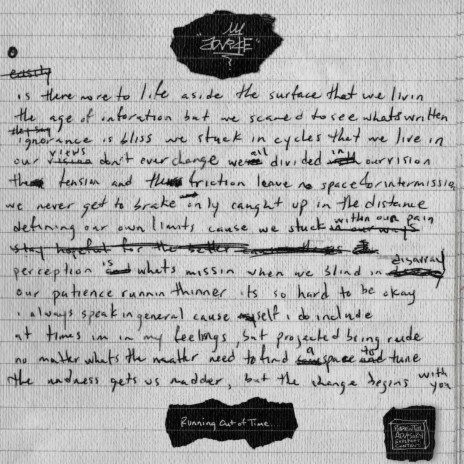 "JOVRCE"
easily
is there more to life aside the surface that we live in
the age of inforation but we scared to see whats written
they say
ignorance is bliss we stuck in cycles that we live in
our views don't ever change we all divided in our vision
the tension and the friction leave no space for intermissio
we never get to brake only caught up in the distance
defining our own limits cause we stuck within our pain
stay hopeful for the better
perception is whats missin when we blind in disarray
our patience runnin thinner its so hard to be okay
i always speak in general cause myself i do include
at times im in my feelings, but projected being rude
no matter whats the matter need to find a space to tune
the madness gets us madder, but the change begins with you
Running Out of Time.
PARENTAL
ADVISORY
EXPLICIT
CONTENT